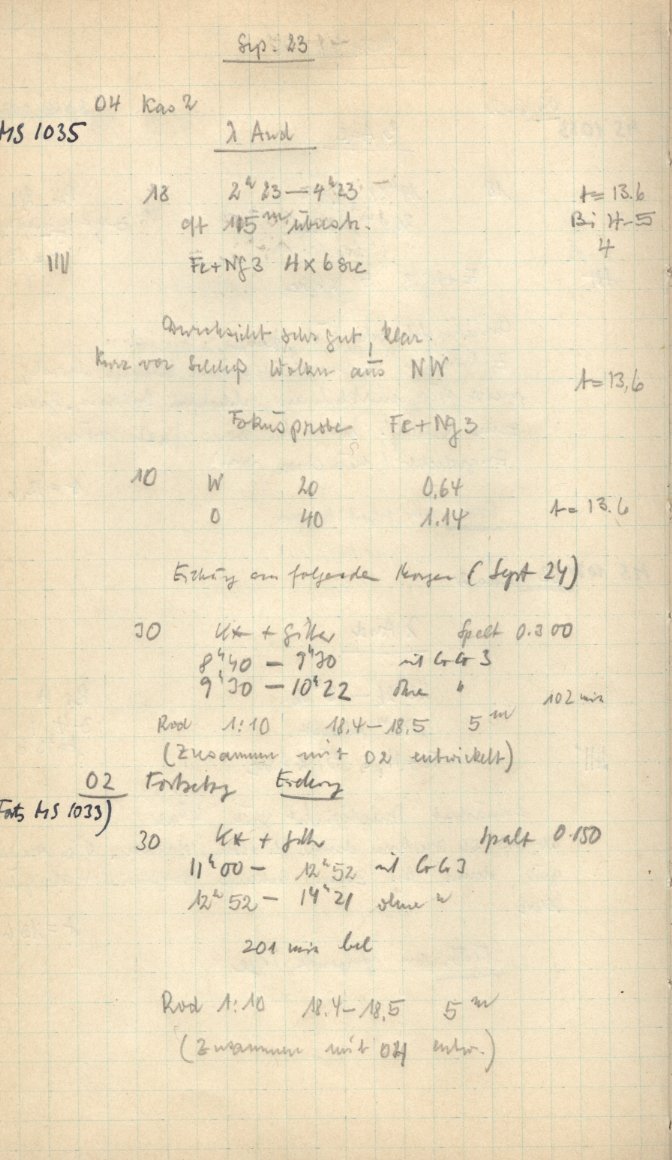 Sep. 23
04 Kas 2
MS 1035
λ And
18 2ʰ23 — 4ʰ23 t = 13.6
oft 15ᵐ Bi 4-5
4
IIII Fe+Ng3 4×6 sec
Durchsicht sehr gut, klar.
Kurz vor Schluß Wolken aus NW
t = 13,6
Fokusprobe Fe+Ng3
10 W 20 0,64
O 40 1.14 t = 13.6
am folgenden Morgen (Sept 24)
30 K* + Gitter Spalt 0.300
8ʰ40 — 9ʰ30 mit CoCr 3
9ʰ30 — 10ʰ22 ohne "
102 min
Rod 1:10 18.4—18,5 5ᵐ
(Zusammen mit 02 entwickelt)
02 Fortsetzg
Forts MS 1033)
30 K* + Gitter Spalt 0.150
11ʰ00 — 12ʰ52 mit CoCr 3
12ʰ52 — 14ʰ21 ohne "
201 min bel
Rod 1:10 18.4—18,5 5ᵐ
(Zusammen mit 04 entw.)